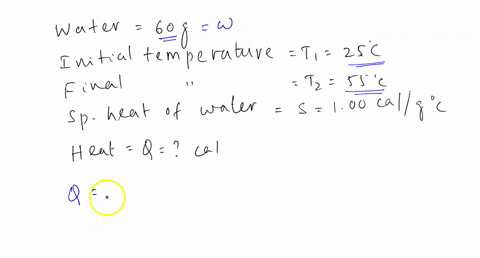 Water = 60g = w
Initial temperature = T₁ = 25°C
Final " = T₂ = 55°C
Sp. heat of water = S = 1.00 cal/g°C
Heat = Q = ? cal
Q = .